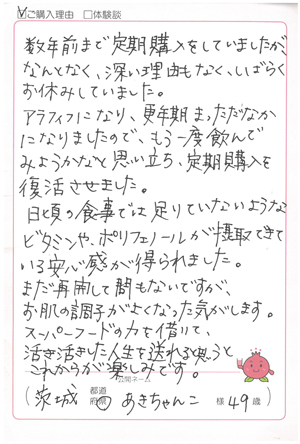 ☑ご購入理由 □体験談
数年前まで定期購入をしていましたが、
なんとなく、深い理由もなく、しばらく
お休みしていました。
アラフィフになり、更年期まっただなか
になりましたので、もう一度飲んで
みようかなと思い立ち、定期購入を
復活させました。
日頃の食事では足りていないような
ビタミンや、ポリフェノールが摂取できて
いる安心感が得られました。
まだ再開して間もないですが、
お肌の調子がよくなった気がします。
スーパーフードの力を借りて、
活き活きした人生を送れると思うと
これからが楽しみです。
公開ネーム
(茨城 都道府県 あきちゃんこ 様 49歳)